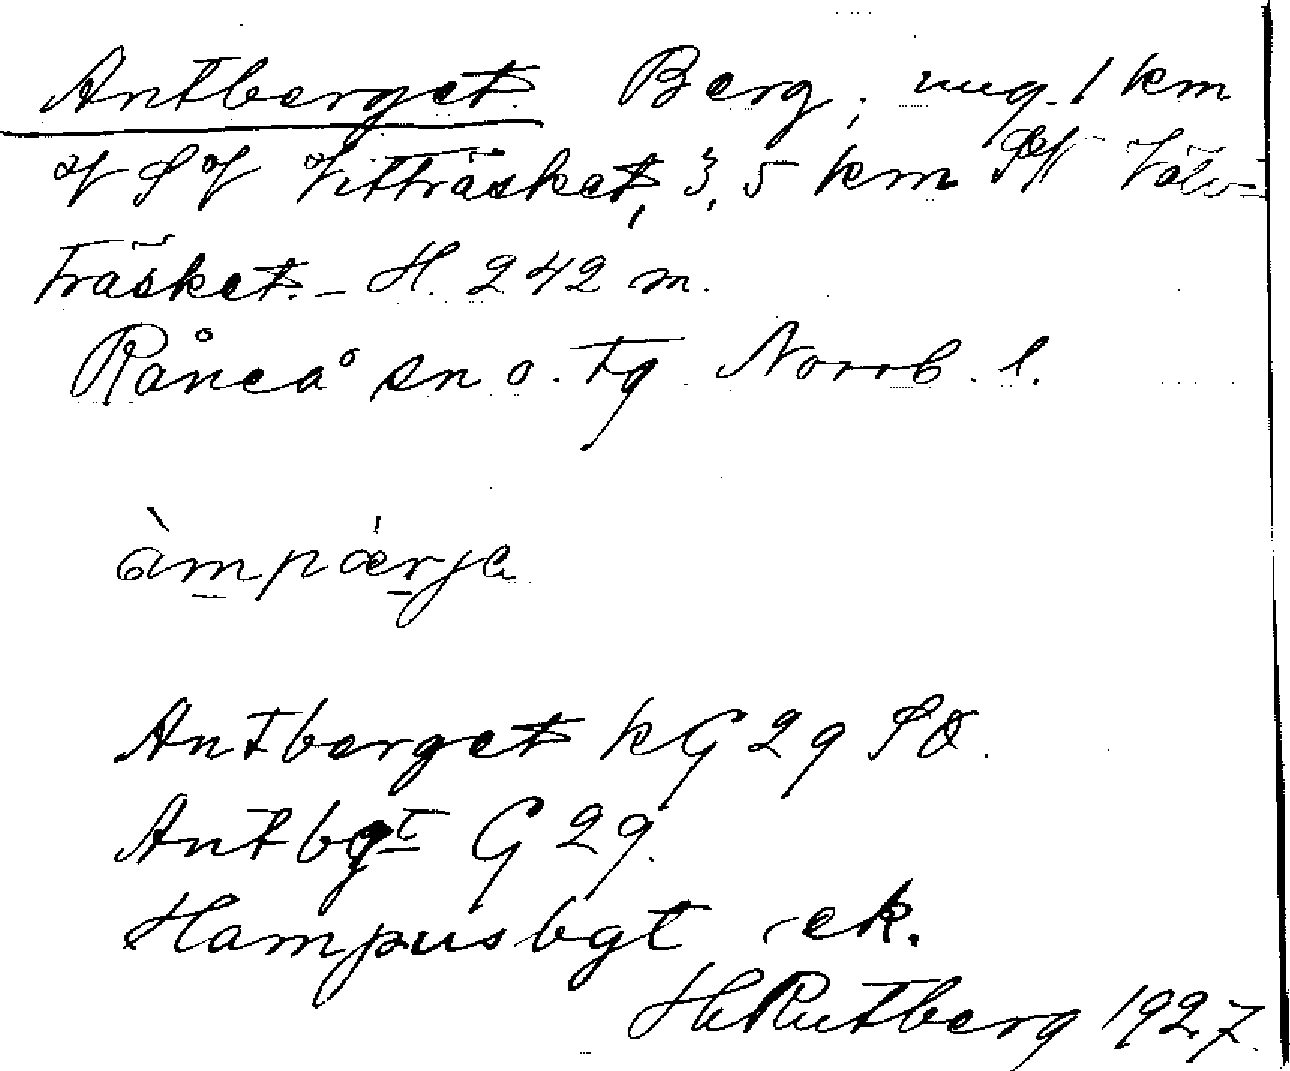 Antberget. Berg, ung. 1 km
V S V Vitträsket, 3,5 km SV Valv-
träsket. - H. 242 m.
Råneå sn o. tg. Norrb. l.
àmpærja
Antberget kG 29 SO.
Antbgt G 29.
Hampusbgt ek.
H Rutberg 1927.